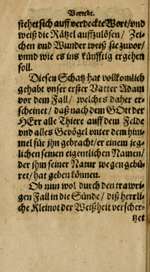 Vorrede.
stehet sich auff verdeckte Wort / und
weiß die Rätzel auffzulösen / Zei-
chen und Wunder weiß sie zuvor /
unnd wie es ins künfftig ergehen
soll.
Diesen Schatz hat vollkomlich
gehabt unser erster Vatter Adam
vor dem Fall / welches daher er-
scheinet / daß nach dem GOtt der
HErr alle Thiere auff dem Felde
und alles Gevögel unter dem him-
mel für ihn gebracht / er einem jeg-
lichen seinen eigentlichen Namen /
der ihm seiner Natur wegen gebüh-
ret / hat geben können.
Ob nun wol durch den trawri-
gen Fall in die Sünde / diß herrli-
che Kleinot der Weißheit verscher-
tzet